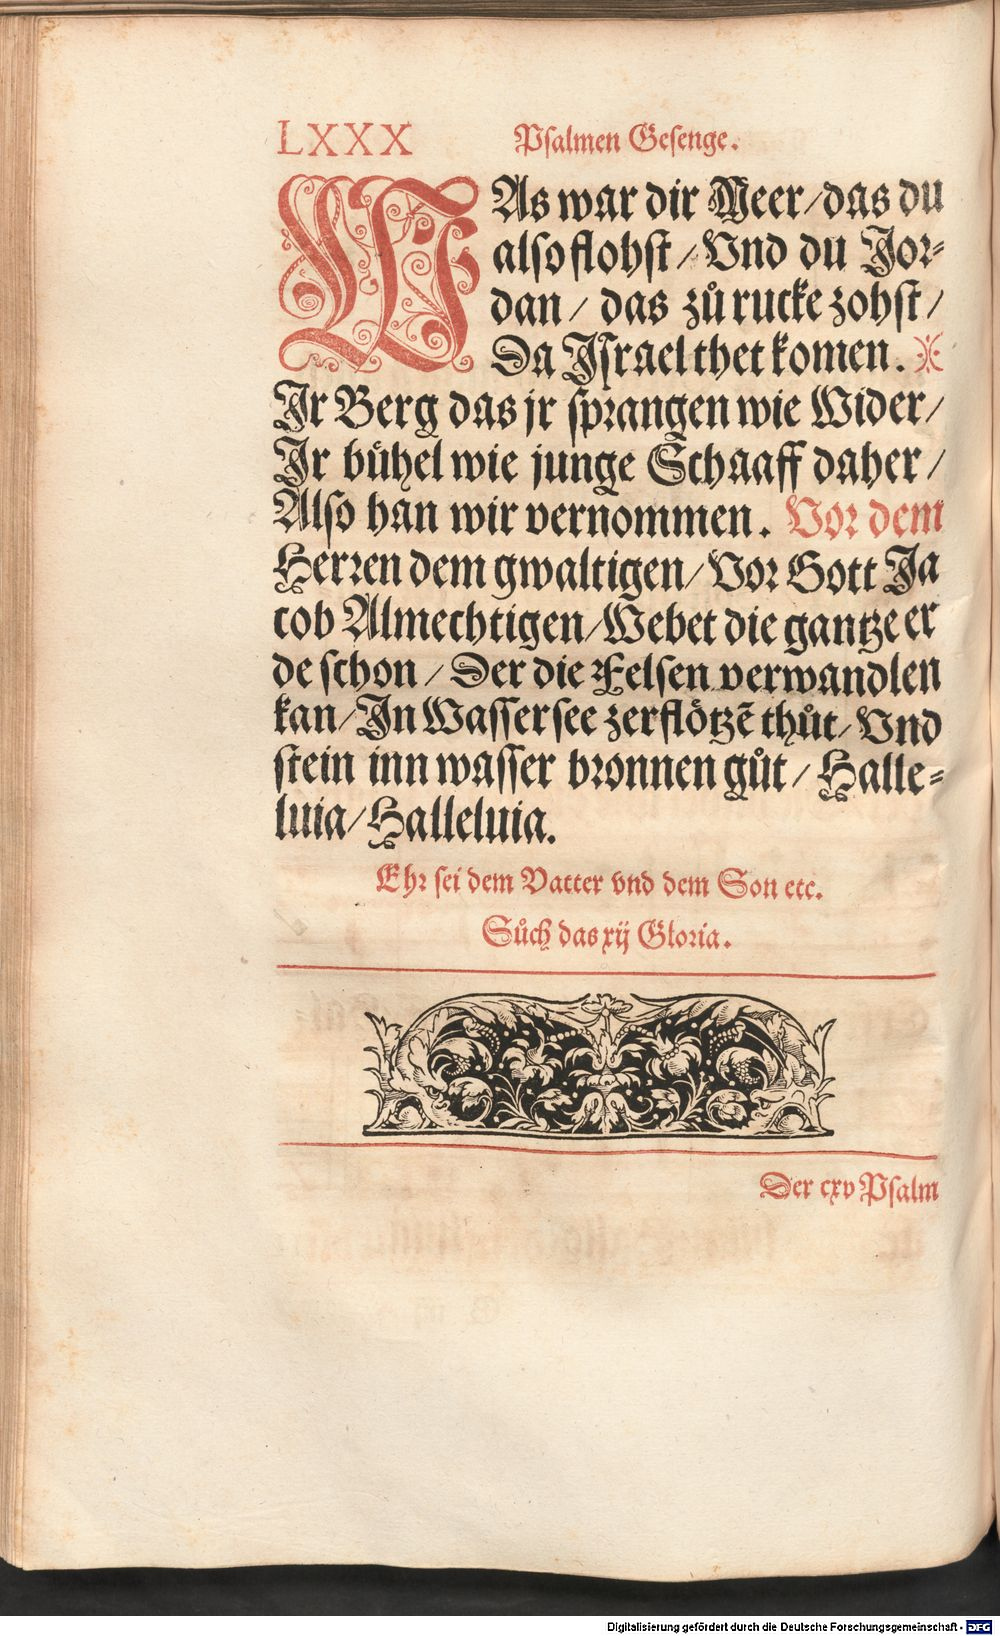 LXXX Psalmen Gesenge.
WAs war dir Meer/das du
also flohst/Vnd du Jor-
dan/ das zů rucke zohst/
Da Jsrael thet komen.
Jr Berg das jr sprangen wie Wider/
Jr bůhel wie junge Schaaff daher/
Also han wir vernommen. Vor dem
Herren dem gwaltigen/Vor Gott Ja
cob Almechtigen/Webet die gantze er
de schon/Der die Felsen verwandlen
kan/Jn Wassersee zerflötzẽ thůt/Vnd
stein inn wasser bronnen gůt/Halle-
luia/Halleluia.
Ehr sei dem Vatter vnd dem Son etc.
Sůch das xij Gloria.
Der cxv Psalm
Digitalisierung gefördert durch die Deutsche Forschungsgemeinschaft - DFG